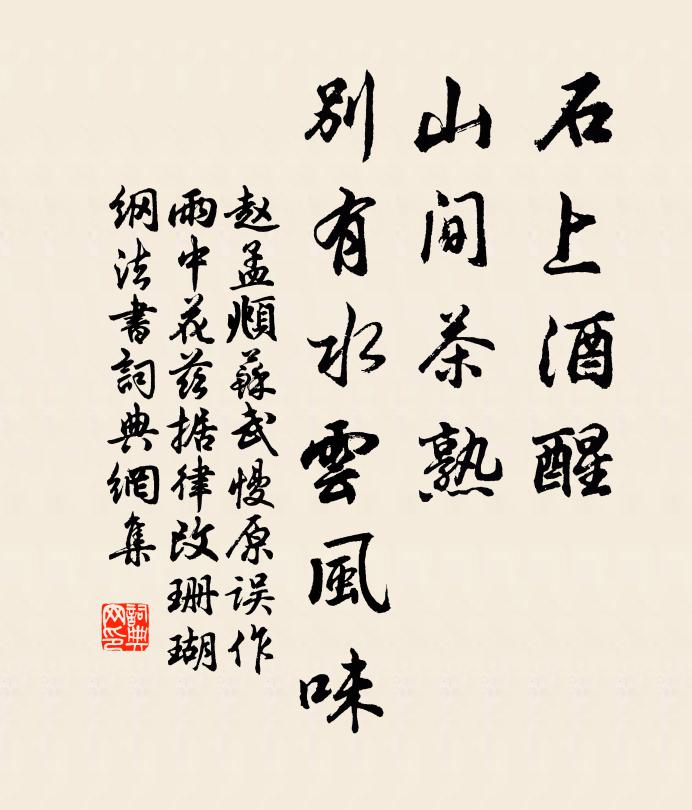 石上酒醒
山间茶熟
別有水雲風味
赵孟頫蘇武慢原误作
雨中花兹据律改珊瑚
纲法書詞典網集
詞典网印